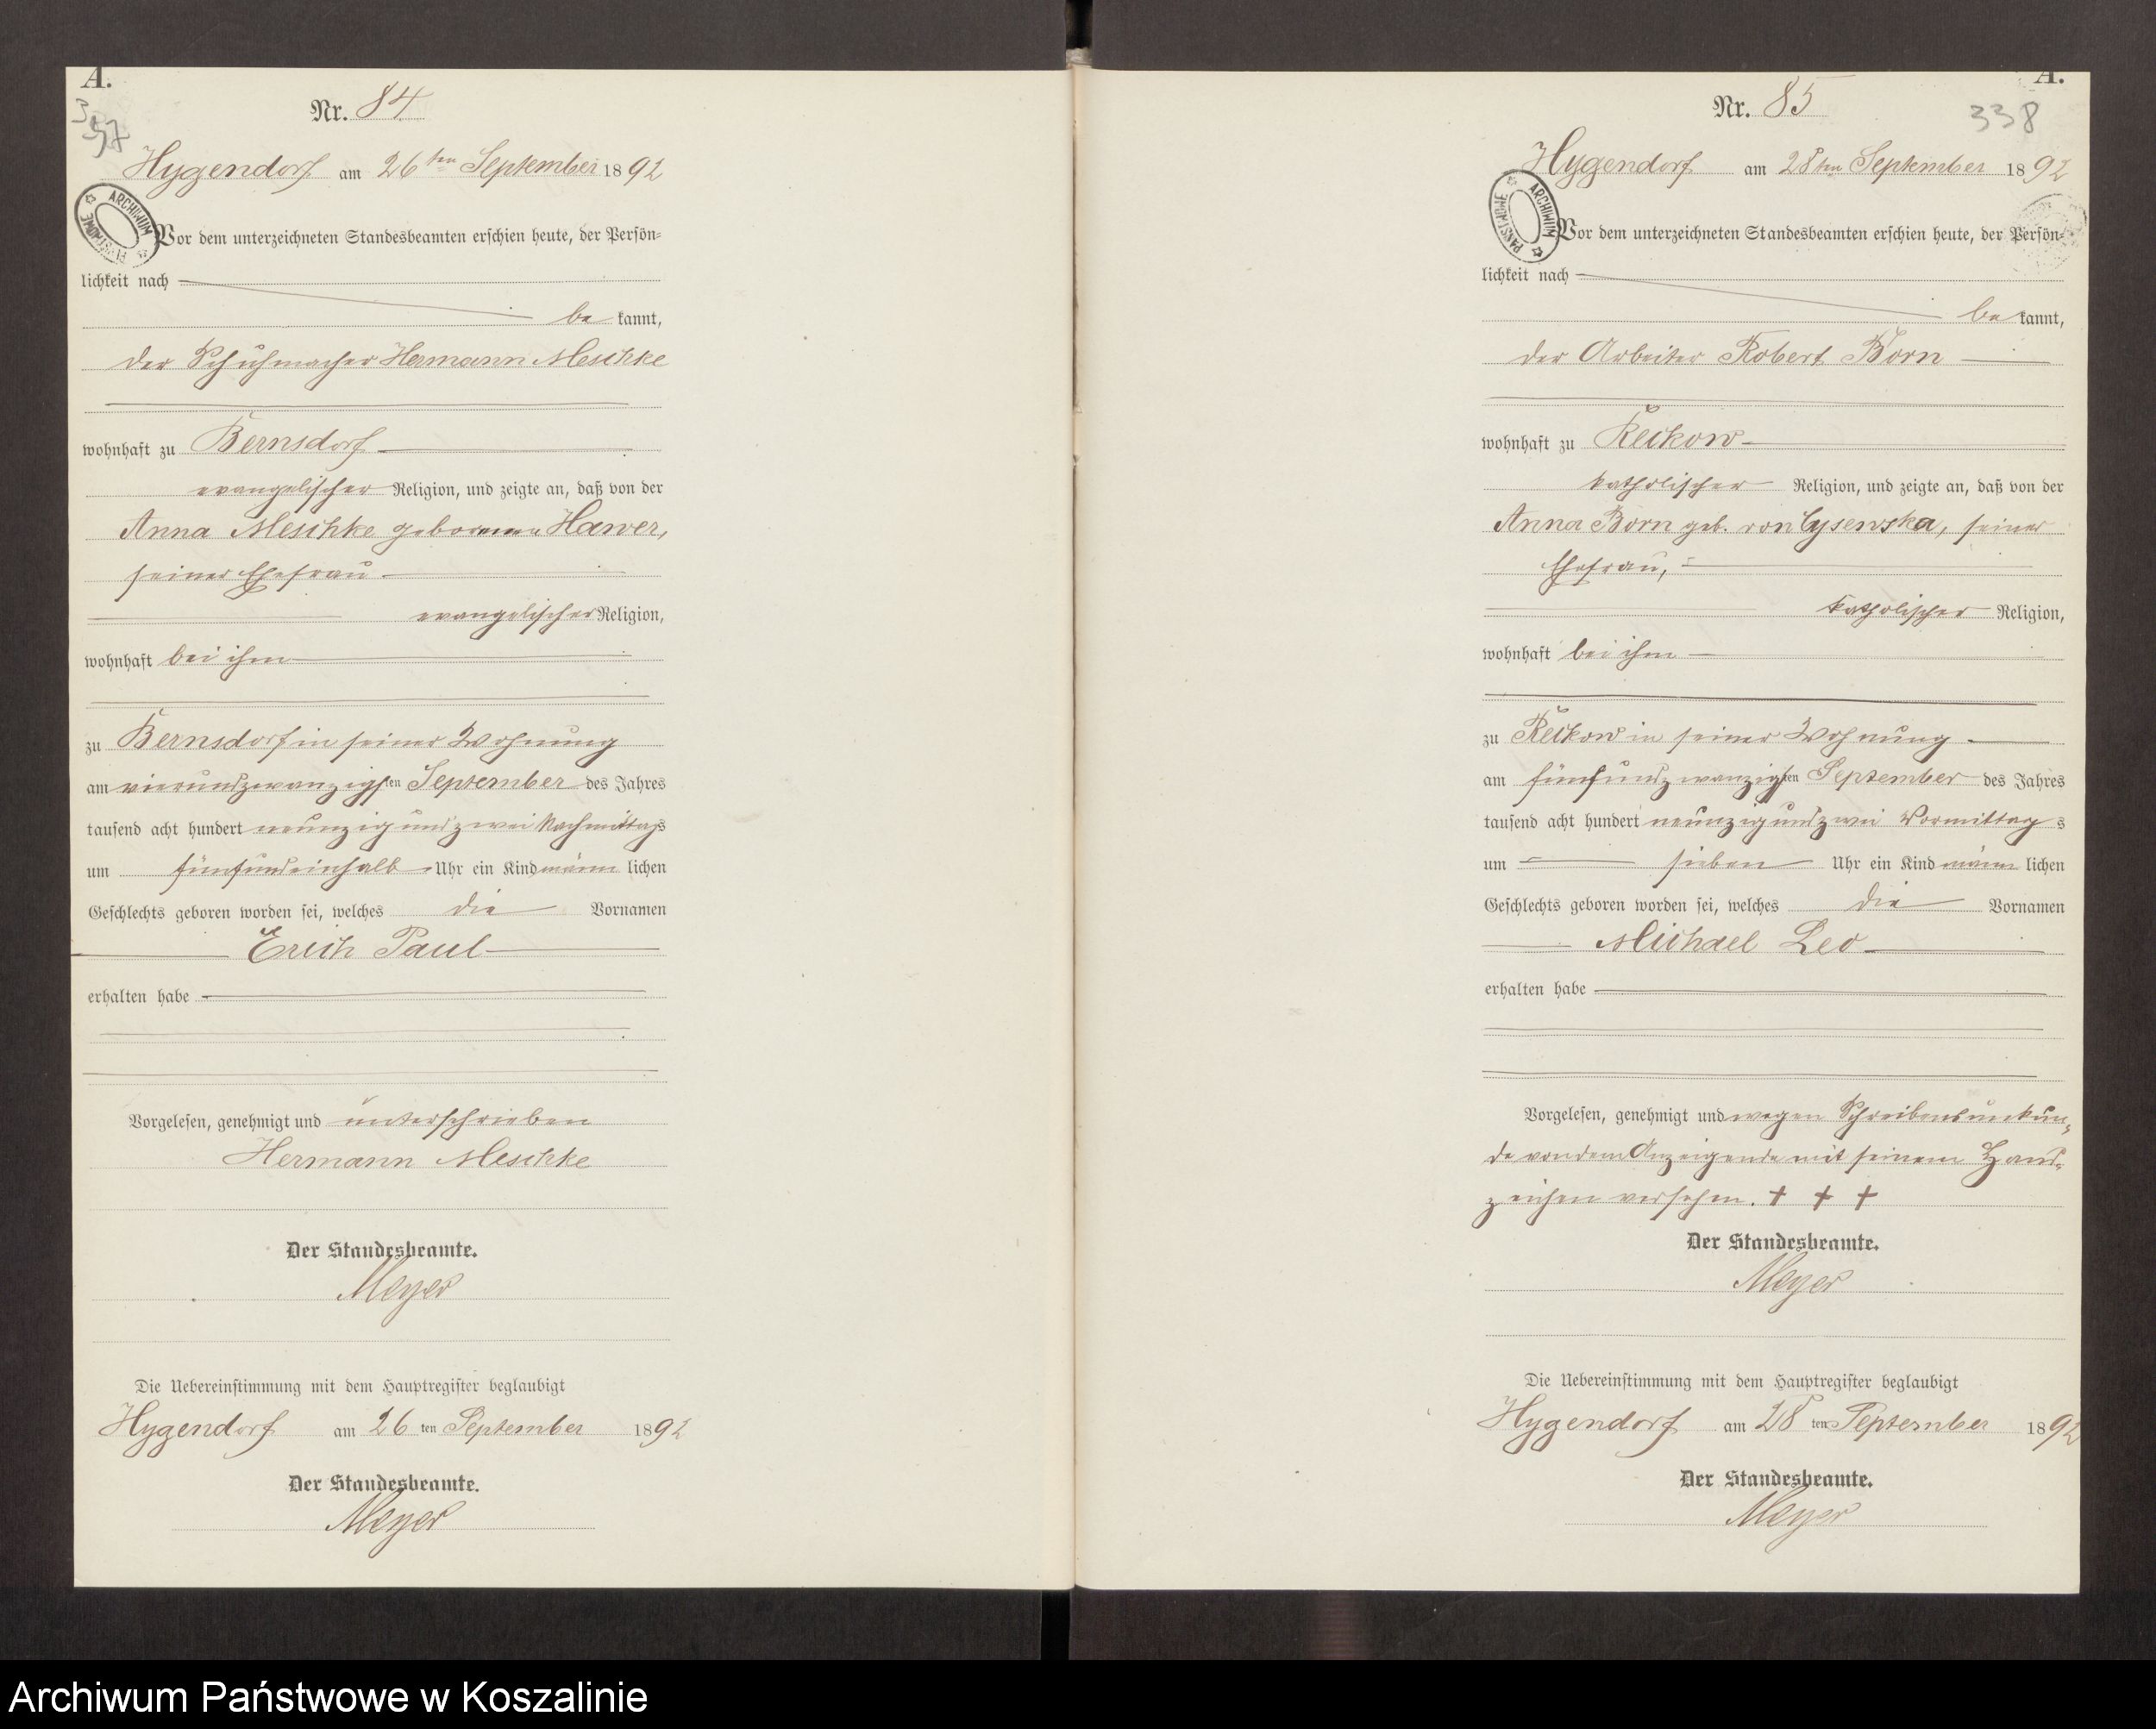 A.
Nr. 84
337
Hygendorf am 26ten September 1892
ARCHIWUM PAŃSTWOWE
Vor dem unterzeichneten Standesbeamten erschien heute, der Persön-
lichkeit nach
be kannt,
der Schuhmacher Hermann Meschke
wohnhaft zu Bernsdorf
evangelischer Religion, und zeigte an, daß von der
Anna Meschke geborenen Hawer,
seiner Ehefrau
evangelischer Religion,
wohnhaft bei ihm
zu Bernsdorf in seiner Wohnung
am vierundzwanzigsten September des Jahres
tausend acht hundert neunzig und zwei Nachmittags
um fünfundeinhalb Uhr ein Kind männ lichen
Geschlechts geboren worden sei, welches die Vornamen
Erich Paul
erhalten habe
Vorgelesen, genehmigt und unterschrieben
Hermann Meschke
Der Standesbeamte.
Meyer
Die Uebereinstimmung mit dem Hauptregister beglaubigt
Hygendorf am 26 ten September 1892
Der Standesbeamte.
Meyer
A.
Nr. 85
338
Hygendorf am 28ten September 1892
ARCHIWUM PAŃSTWOWE
Vor dem unterzeichneten Standesbeamten erschien heute, der Persön-
lichkeit nach
be kannt,
der Arbeiter Robert Born
wohnhaft zu Reckow
katholischer Religion, und zeigte an, daß von der
Anna Born geb. von Cysewska, seiner
Ehefrau,
katholischer Religion,
wohnhaft bei ihm
zu Reckow in seiner Wohnung
am fünfundzwanzigsten September des Jahres
tausend acht hundert neunzig und zwei Vormittag s
um sieben Uhr ein Kind männ lichen
Geschlechts geboren worden sei, welches die Vornamen
Michael Leo
erhalten habe
Vorgelesen, genehmigt und wegen Schreibensunkun-
de von dem Anzeigende mit seinem Hand-
zeichen versehen. + + +
Der Standesbeamte.
Meyer
Die Uebereinstimmung mit dem Hauptregister beglaubigt
Hygendorf am 28 ten September 1892
Der Standesbeamte.
Meyer
Archiwum Państwowe w Koszalinie